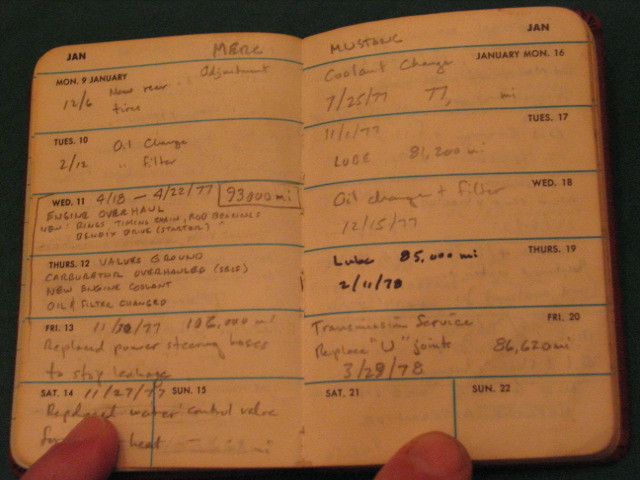 JAN MERC
MON. 9 JANUARY Adjustment
12/6 New rear
tires
TUES. 10 Oil Change
2/12 " filter
WED. 11 4/18 — 4/22/77 93000 mi
ENGINE OVERHAUL
NEW: RINGS, TIMING CHAIN, ROD BEARINGS
BENDIX DRIVE (STARTER)
THURS. 12 VALVES GROUND
CARBURETOR OVERHAULED (SELF)
NEW ENGINE COOLANT
OIL & FILTER CHANGED
FRI. 13 11/20/77 106,000 mi
Replaced power steering hoses
to stop leakage
SAT. 14 11/27/77 SUN. 15
Replaced water control valve
heat
mi
MUSTANG JAN
JANUARY MON. 16
Coolant Change
7/25/77 77, mi
TUES. 17
11/1/77
LUBE 81,200 mi
WED. 18
Oil change & filter
12/15/77
THURS. 19
Lube 85,000 mi
2/11/78
FRI. 20
Transmission Service
Replace "U" joints 86,620 mi
3/29/78
SAT. 21 SUN. 22